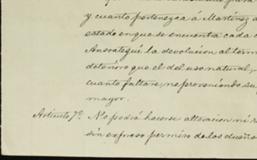 y cuanto pertenezca á Martinez
estado en que se encuentra cada
Ansorategui la devolucion, al term
deterioro que el del uso natural,
cuanto faltare, ne proveniendo
mayor.
Articulo 7º. No podrá hacerse alteracion ni
sin expreso permiso de los dueños